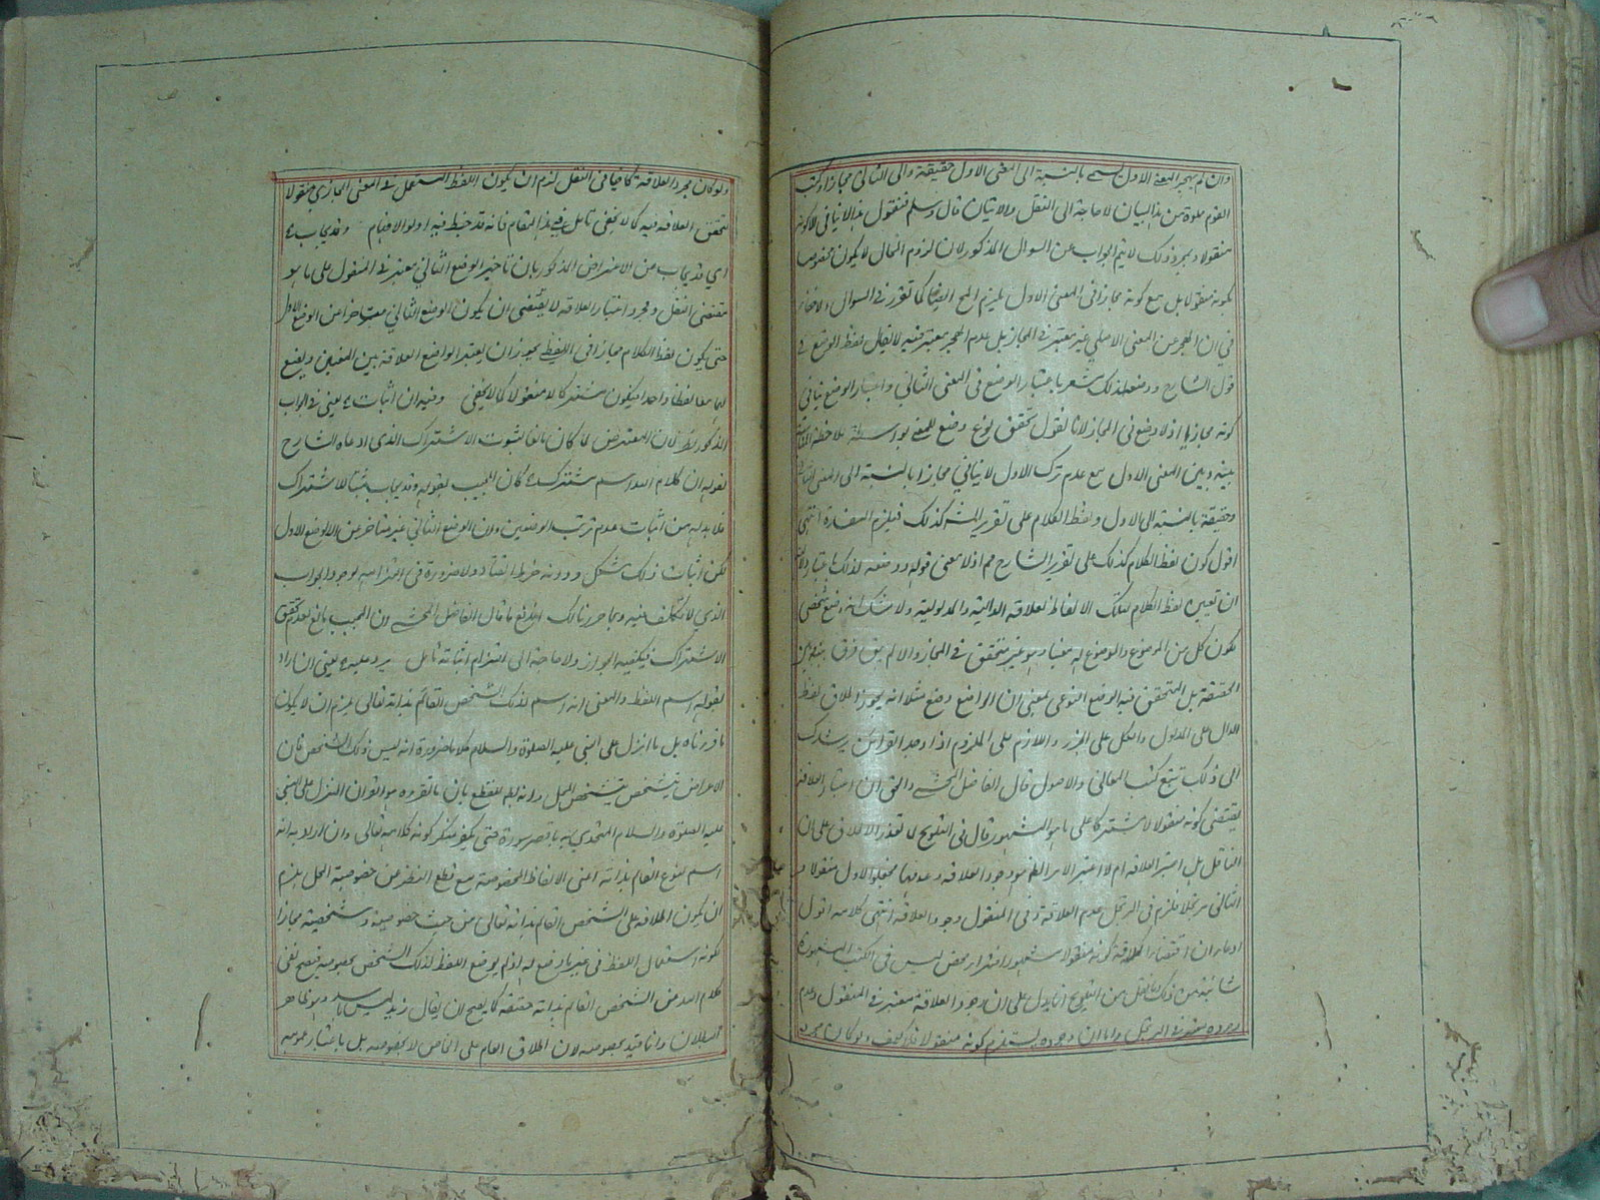 وان لم يهجر المعنى الاول يسمى بالنسبة الى المعنى الاول حقيقة والى الثاني مجازا وكتب
القوم مملوة من هذا البيان لا حاجة الى النقل والاتيان قال وسلم فنقول هذا لا ينافي لا كونه
منقولا وبمجرد ذلك لا يتم الجواب عن السوال المذكور لان لزوم المحال لا يكون مخصوصا
بكونه منقولا بل مع كونه مجازا في المعنى الاول يلزم المح ايضا كما تقرر في السوال ولا خفاء
في ان الهجر عن المعنى الاصلي غير معتبر في المجاز بل عدم الهجر معتبر فيه لا يقال لفظ الوضع في
قول الشارح ووضعه لذلك مشعر باعتبار الوضع في المعنى الثاني واعتبار الوضع ينافي
كونه مجازيا اذ لا وضع في المجاز لانا نقول تحقق نوع وضع للمعنى بواسطة ملاحظة المناسبة
بينه وبين المعنى الاول مع عدم ترك الاول لا ينافي مجازا بالنسبة الى المعنى الثاني
وحقيقة بالنسبة الى الاول ولفظ الكلام على تقرير الشه كذلك فيلزم المفسدة انتهى
اقول كون لفظ الكلام كذلك على تقرير الشارح مم اذ لا معنى قوله ووضعه لذلك باعتبار
ان تعيين لفظ الكلام لتلك الالفاظ لعلاقة الدالية والمدلولية ولا شك انه وضع شخصي
لكون كل من الموضوع والموضوع له معينا وهو غير متحقق في المجاز والا لم يبق فرق بينه وبين
الحقيقة بل المتحقق فيه الوضع النوعي بمعنى ان الواضع وضع مثلا انه يجوز اطلاق لفظ
الدال على المدلول والكل على الجزء واللازم على الملزوم اذا وجد القرائن يرشدك
الى ذلك تتبع كتب المعاني والاصول قال الفاضل المحشي والحق ان اعتبار العلاقة
يقتضي كونه منقولا لا مشتركا على ما هو المشهور قال في التلويح لا تعذر الاطلاع على ان
الناقل هل اعتبر العلاقة ام لا اعتبر الامر الظاهر وهو وجود العلاقة وعدمها فجعلوا الاول منقولا و
الثاني مرتجلا فلزم في المرتجل عدم العلاقة وفي المنقول وجود العلاقة انتهى كلامه اقول
ادعاء ان اقتضاء العلاقة كونه منقولا مشهور افتراء محض ليس في الكتب المشهورة
شائبة من ذلك وما نقل من التلويح انما يدل على ان وجود العلاقة معتبر في المنقول وعدم
وجوده معتبر في المرتجل واما ان وجوده يستلزم كونه منقولا فلا كيف ولو كان مجرد
ولو كان مجرد العلاقة كافيا في النقل لزم ان يكون اللفظ المستعمل في المعنى المجازي منقولا
لتحقق العلاقة فيه كما لا يخفى تامل في هذا المقام فانه قد خبط فيه اولو الافهام وقد يجاب
اي قد يجاب من الاعتراض المذكور بان تاخير الوضع الثاني معتبر في المنقول على ما هو
مقتضى النقل ومجرد اعتبار العلاقة لا يقتضي ان يكون الوضع الثاني متاخرا من الوضع الاول
حتى يكون لفظ الكلام مجازا في اللفظ يجوز ان يعتبر الواضع العلاقة بين المعنيين ويضع
لهما معا لفظا واحدا فيكون مشتركا لا منقولا كما لا يخفى وفيه ان اثبات يعني في الجواب
المذكور نظر لان المعترض لما كان مانعا لثبوت الاشتراك الذي ادعاه الشارح
بقوله ان كلام الله اسم مشترك كان المجيب بقوله وقد يجاب مثبتا للاشتراك
فلا بد له من اثبات عدم ترتب الوضعين وان الوضع الثاني غير متاخر عن الوضع الاول
لكن اثبات ذلك مشكل ودونه خرط القتاد ولا ضرورة في التزامه لوجود الجواب
الذي لا تكلف فيه وبما حررنا لك اندفع ما قال الفاضل المحشي ان المجيب مانع لعدم تحقق
الاشتراك فيكفيه الجواز ولا حاجة الى التزام اثباته تامل يرد عليه يعني ان اراد
بقوله اسم اللفظ والمعنى انه اسم لذلك الشخص القائم بذاته تعالى يلزم ان لا يكون
ما قرءناه بل ما انزل على النبي عليه الصلوة والسلام كلاما ضرورة انه ليس ذلك الشخص فان
الاعراض تتشخص بتشخص المحل وانه بط للقطع بان ما نقرءه هو القران المنزل على النبي
عليه الصلوة والسلام المتحدي به باقصر سورة حتى يكفر منكر كونه كلامه تعالى وان اراد به انه
اسم لنوع القائم بذاته اعني الالفاظ المخصوصة مع قطع النظر عن خصوصية المحل يلزم
ان يكون اطلاقه على الشخص القائم بذاته تعالى من حيث خصوصيته وشخصيته مجازا
لكونه استعمال اللفظ في غير ما وضع له اذ لم يوضع اللفظ لذلك الشخص بخصوصه فيصح نفي
كلام الله من الشخص القائم بذاته حقيقة كما يصح ان يقال زيد ليس وهو ظاهر
البطلان وانما قيد بخصوصه لان اطلاق العام على الخاص لا بخصوصه بل باعتبار عمومه